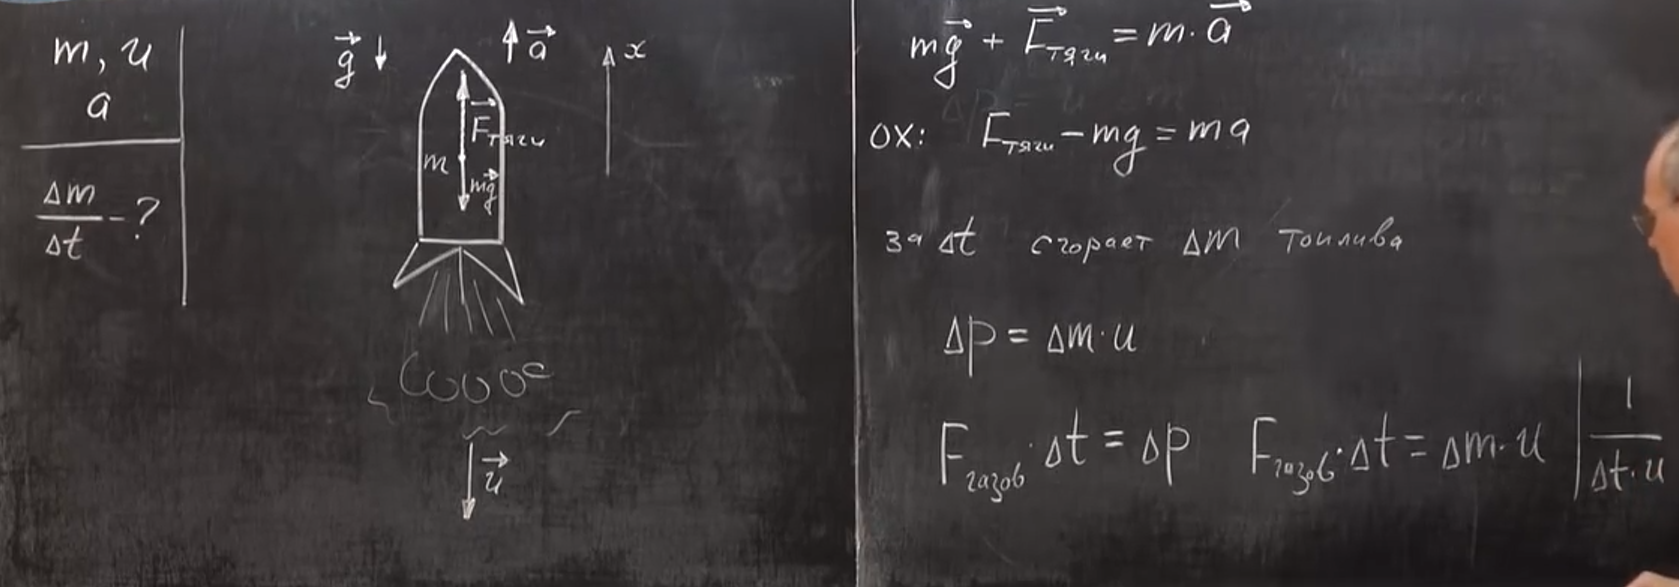 m, u
a
Δm/Δt - ?
g⃗ ↓
↑ a⃗
x
F⃗тяги
m
mg⃗
u⃗
mg⃗ + F⃗тяги = m · a⃗
OX: Fтяги - mg = ma
за Δt сгорает Δm топлива
Δp = Δm · u
Fгазов · Δt = Δp Fгазов · Δt = Δm · u | 1/Δt · u